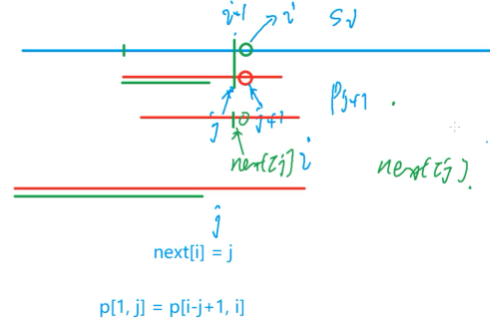 i-1 i S[i]
j j+1 P[j+1]
next[j] i next[j].
j
next[i] = j
p[1, j] = p[i-j+1, i]